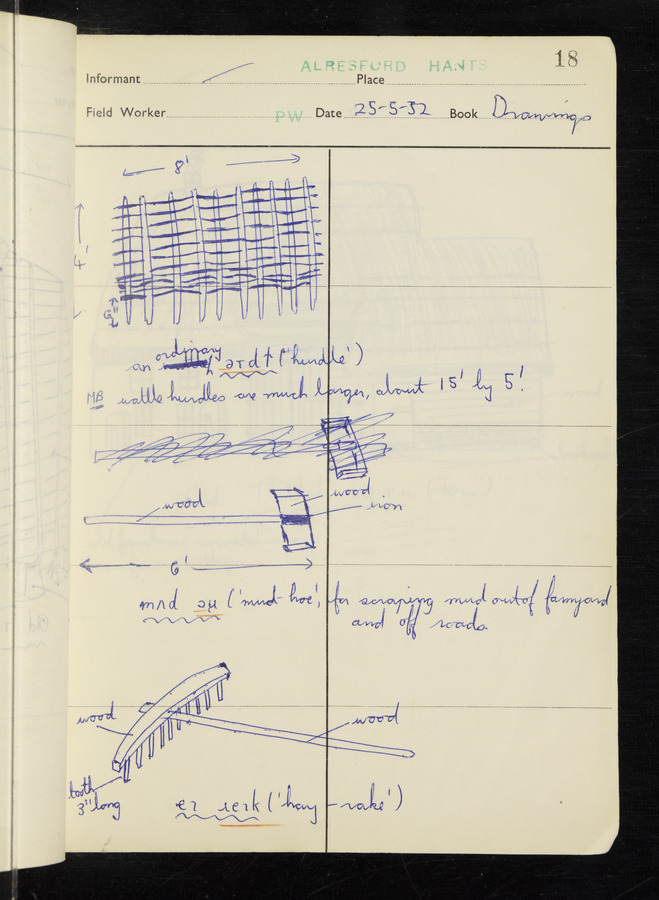 18
ALRESFORD HANTS
Informant Place
Field Worker PW Date 25-5-32 Book Drawings
8'
4'
ordinary
an ('hurdle')
MB wattle hurdles are much larger, about 15' by 5'.
wood wood
iron
6'
('mud-hoe', for scraping mud out of farmyard
and off roads.
wood wood
tooth
3" long
('hay-rake')